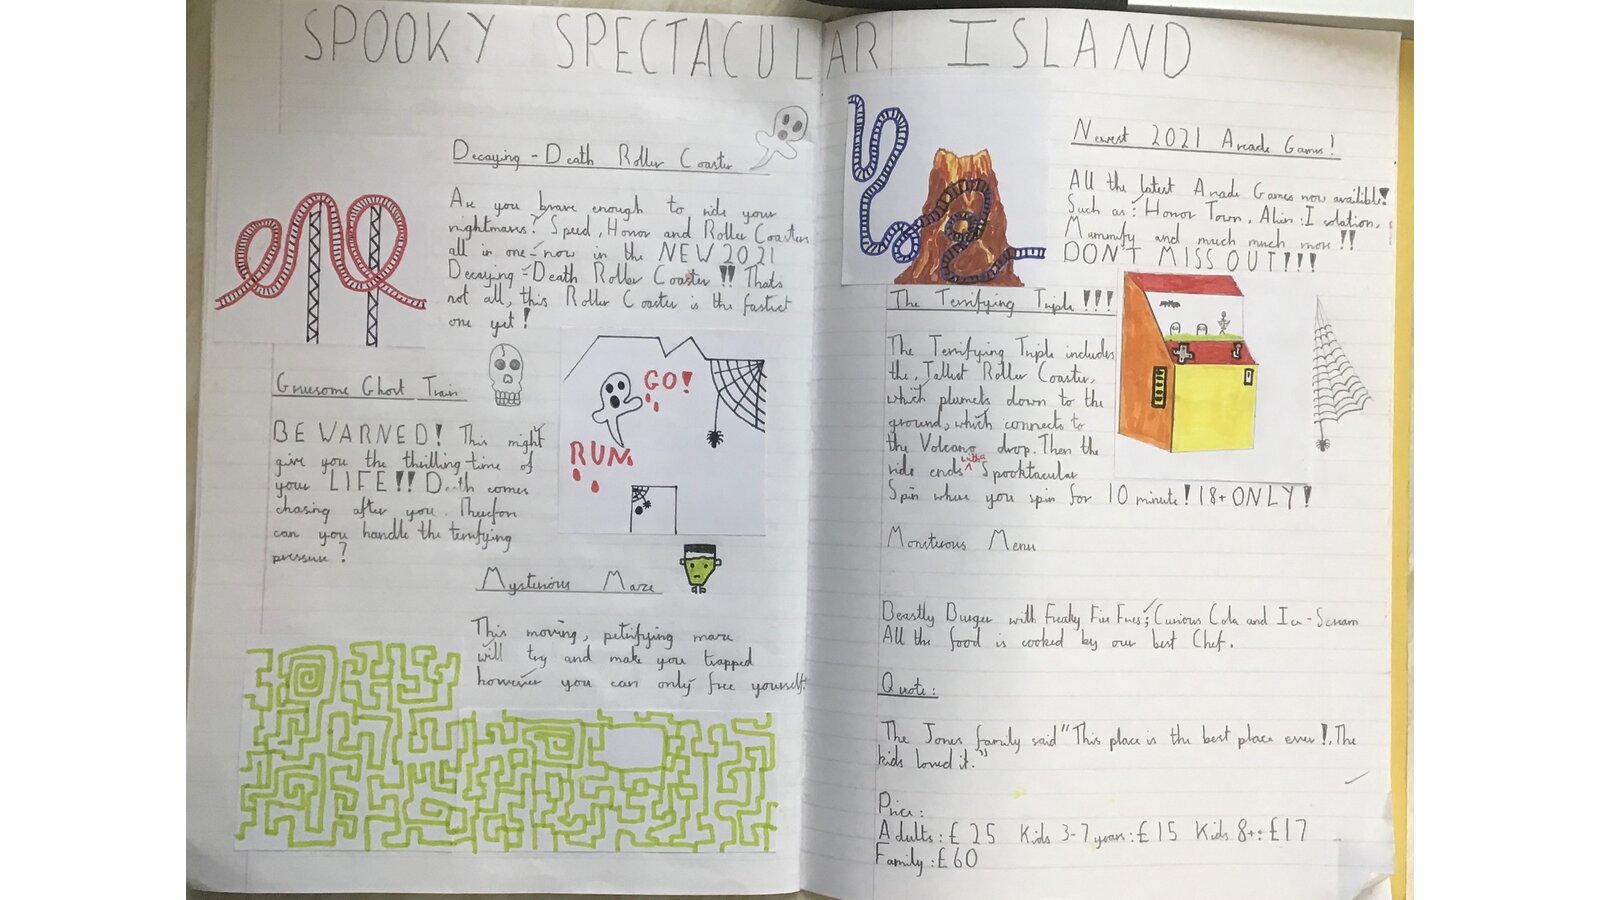 SPOOKY SPECTACULAR ISLAND
Decaying - Death Roller Coaster
Are you brave enough to ride your
nightmares? Speed, Horror and Roller Coasters
all in one - now in the NEW 2021
Decaying - Death Roller Coaster !! Thats
not all, this Roller Coaster is the fastest
one yet!
Gruesome Ghost Train
BE WARNED! This might
give you the thrilling-time of
your LIFE!! Death comes
chasing after you. Therefore
can you handle the terrifying
pressure?
GO!
RUN
Mysterious Maze
This moving, petrifying maze
will try and make you trapped
however you can only free yourself.
Newest 2021 Arcade Games!
All the latest Arcade Games now availible!
Such as: Horror Town, Alien: Isolation,
Mummify and much much more !!
DON'T MISS OUT!!!
The Terrifying Triple !!!
The Terrifying Triple includes
the, Tallest Roller Coaster,
which plumets down to the
ground, which connects to
the Volcano drop. Then the
ride ends with a Spooktacular
Spin where you spin for 10 minute! 18+ ONLY!
Monsterous Menu
Beastly Burger with Freaky Fire Fries; Curious Cola and Ice-Scream
All the food is cooked by our best Chef.
Quote:
The Jones family said "This place is the best place ever!. The
kids loved it."
Price:
Adults: £25 Kids 3-7 years: £15 Kids 8+: £17
Family: £60